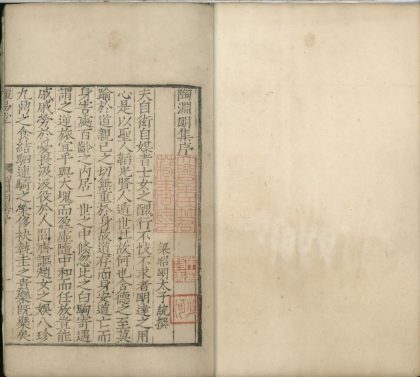 陶淵明集序
梁昭明太子統撰
夫自衒自媒者士女之醜行不忮不求者明達之用
心是以聖人韜光賢人遁世其故何也含德之至莫
踰於道親己之切無重於身故道存而身安道亡而
身害處百齡之內居一世之中倏忽比之白駒寄遇
謂之逆旅宜乎與大塊而盈虛隨中和而任放豈能
戚戚勞於憂畏汲汲役於人間齊謳趙女之娛八珍
九鼎之食結駟連騎之榮侈袂執圭之貴樂既樂矣